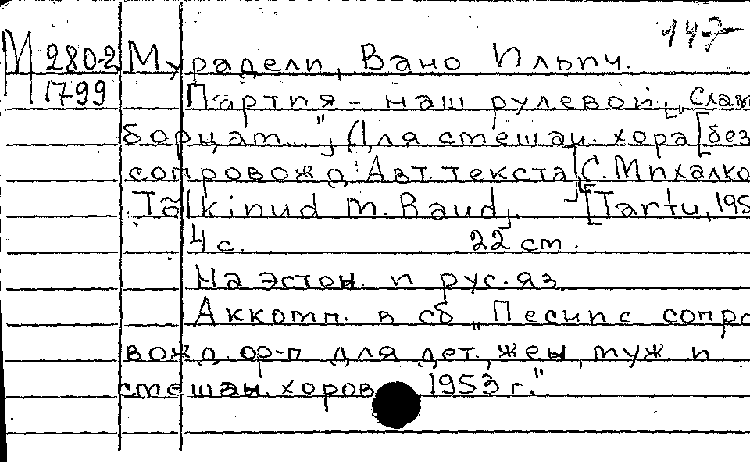 447
М 280-2 Мурадели, Вано Ильич.
1799 Партия - наш рулевой. „Слав
борцам...", (Для смешан. хора [без
сопровожд. Авт. текста] С. Михалко
Tõlkinud M. Raud. [Tartu, 195
4 с. 22 см.
На эстон. и рус. яз.
Аккомп. в сб „Песни с сопро
вожд. ор-п для дет., жен, муж и
смешан. хоров 1953 г."